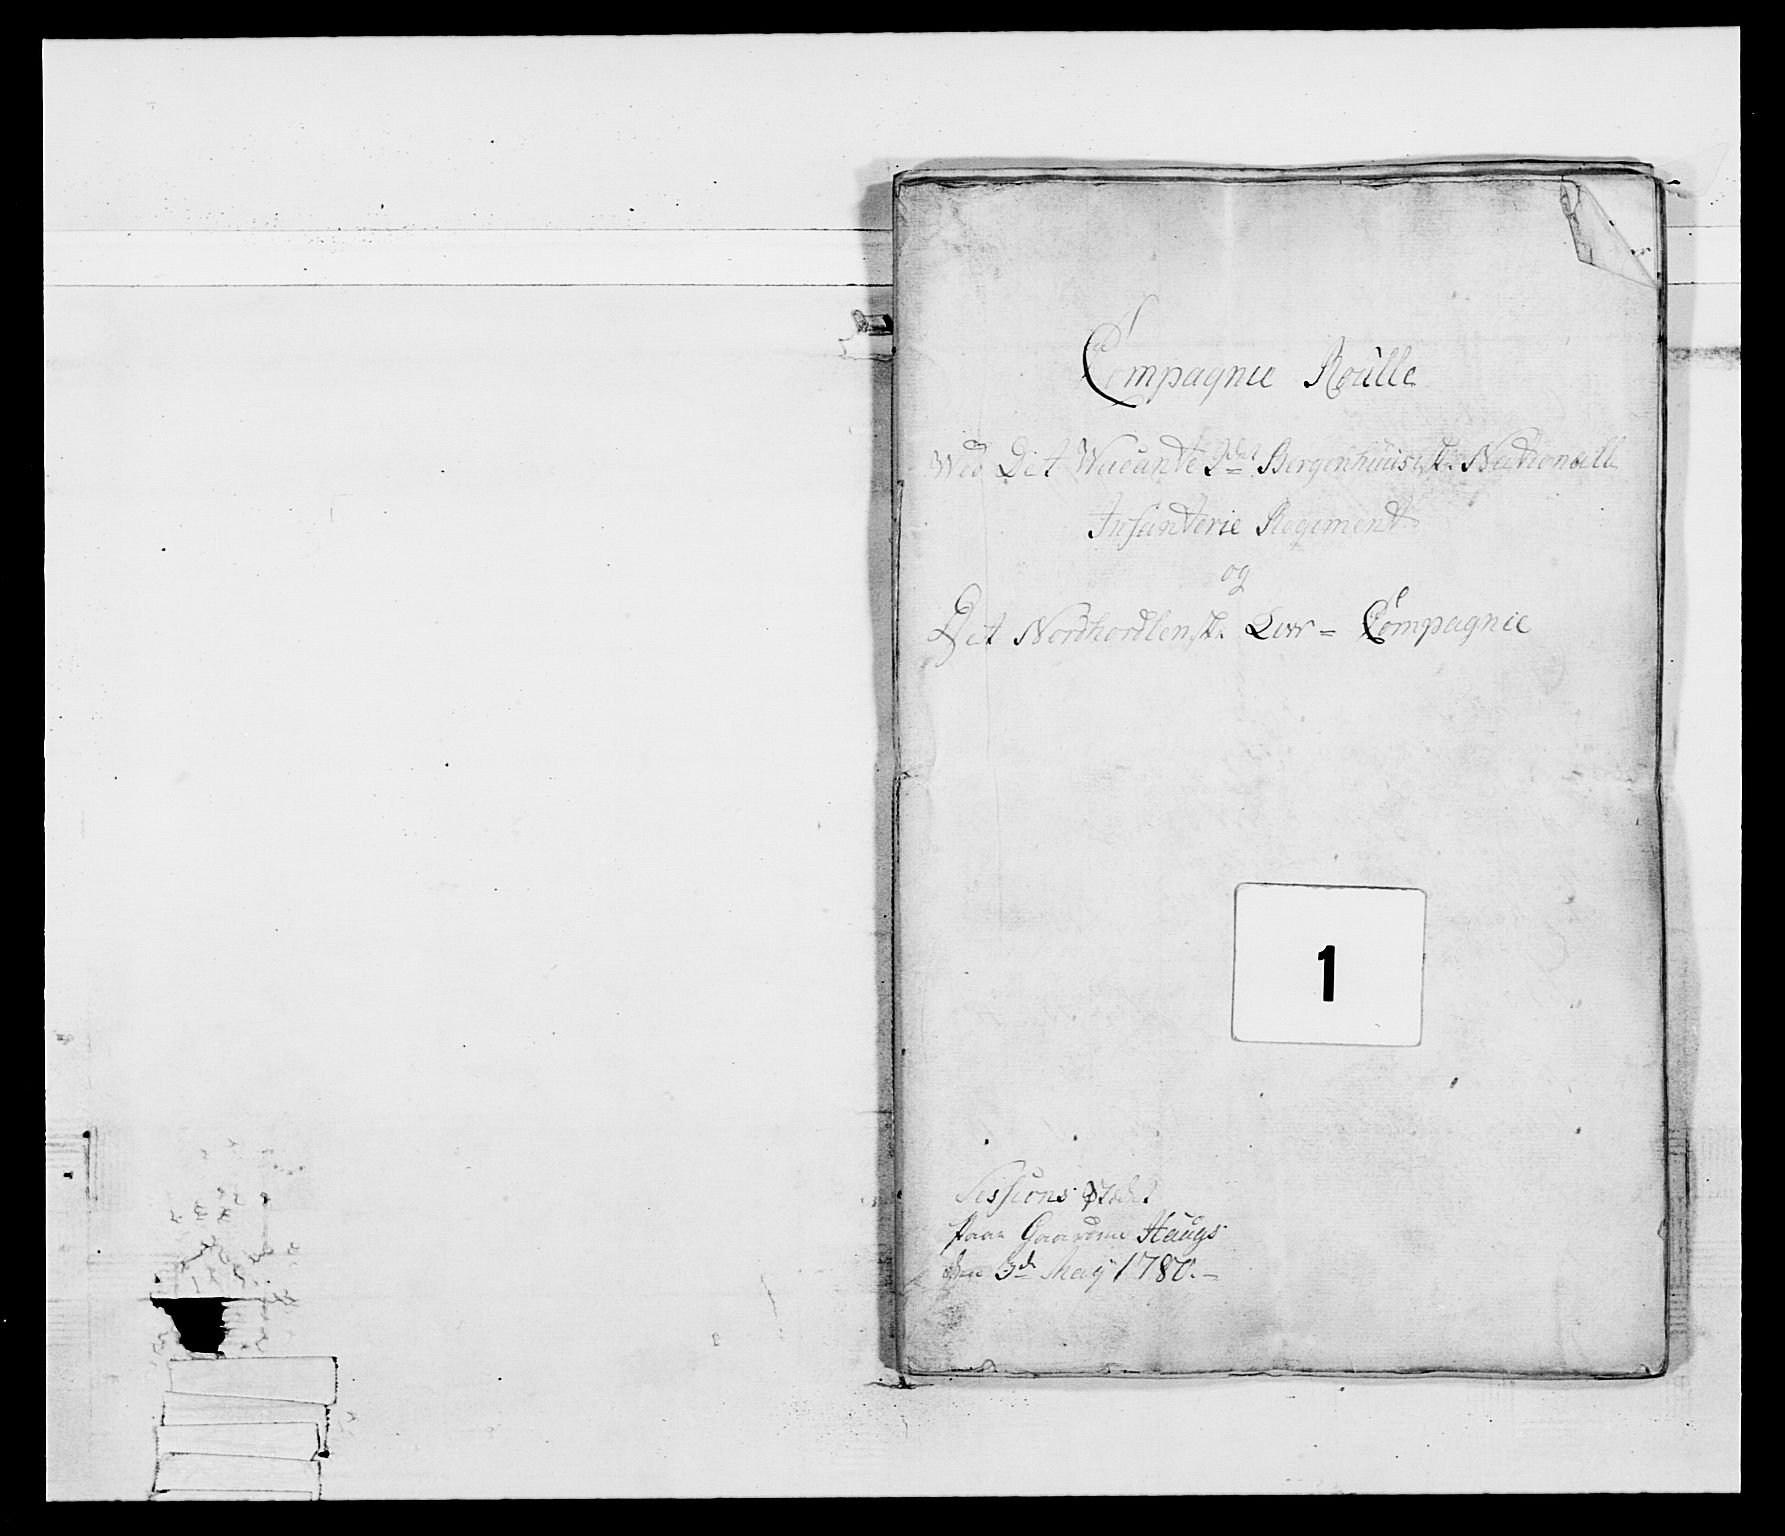 Compagnie Roulle
Wed Det Vacante 2det Bergenhuusiske Nationalle
Infanterie Regiment
og
Det Nordhordlenske Liv = Compagnie
1
Sessions Stædet
paa Gaarden Haugs
den 3de May 1780. –